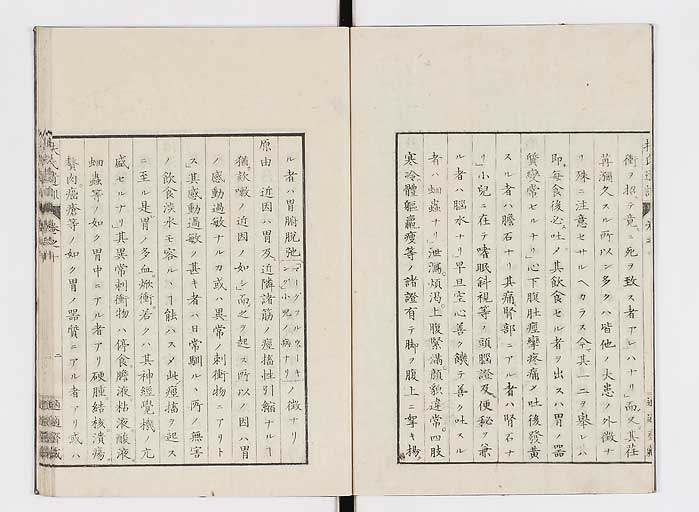 衝ヲ招テ竟ニ死ヲ致ス者アレハナリ而又其荏
苒瀰久スル所以ン多クハ皆他ノ大患ノ外徴ナ
リ殊ニ注意セサルヘカラス今其一二ヲ舉レハ
即毎食後必吐其飲食セル者ヲ出スハ胃ノ器
質變常セルナリ心下腹肚痙攣疼痛ノ吐後發黄
スル者ハ膽石ナリ其痛腎部ニアル者ハ腎石ナ
リ小兒ニ在テ嗜眠斜視等ノ頭腦證及便秘ヲ兼
ル者ハ腦水ナリ早旦空心善ク饑テ善ク吐スル
者ハ蛔蟲ナリ泄瀉煩渇上腹緊滿顏貌違常四肢
寒冷體軀羸瘦等ノ諸證有テ脚ヲ腹上ニ牽キ揚
ル者ハ胃腑脱弛ノ徴ナリ
原由 近因ハ胃及近隣諸筋ノ痙搐性引縮ナル
猶欬嗽ノ近因ノ如シ而之ヲ起ス所以ノ因ハ胃
ノ感動過敏ナルカ或ハ異常ノ刺衝物ニアリト
ス其感動過敏ノ甚キ者ハ日常馴ルヽ所ノ無害
ノ飲食淡水モ容ルヽ能ハス此痙搐ヲ起ス
ニ至ル是胃ノ多血焮衝若クハ其神經覺機ノ亢
盛セルナリ其異常刺衝物ハ停食膽液粘液酸液
蛔蟲等ノ如ク胃中ニアル者アリ硬腫結核潰瘍
贅肉癌瘡等ノ如ク胃ノ器質ニアル者アリ或ハ